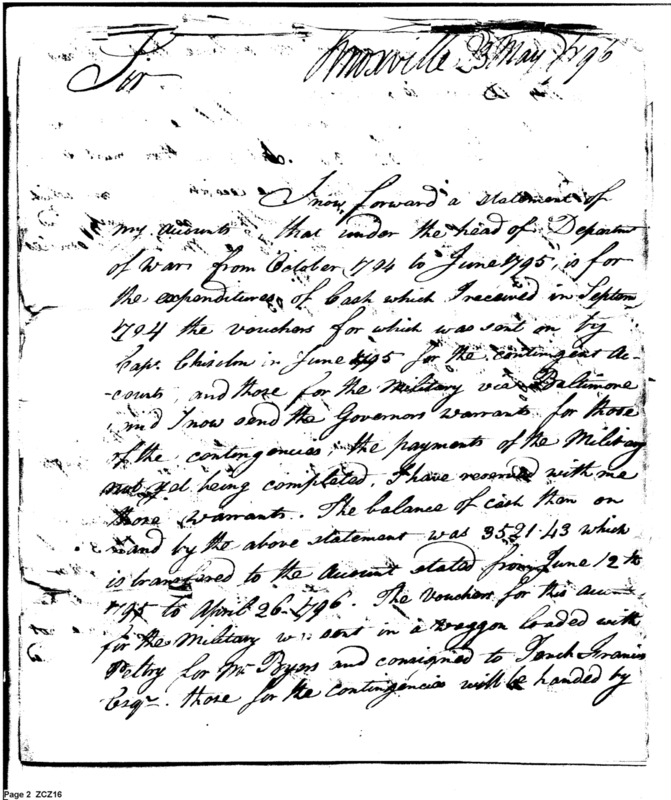 Knoxville 3 May 1796
Sir
I now forward a statement of
my accounts that under the head of Departmt
of War from October 1794 to June 1795, is for
the expenditures of Cash which I received in Septem
1794 the vouchers for which was sent on by
Capt. Chisolm in June 1795 for the contingent Ac-
-counts and those for the Military via Baltimore
and I now send the Governors warrants for those
of the contingencies, the payments of the Military
not yet being completed, I have reserved with me
those warrants. The balance of cash then on
hand by the above statement was 3521.43 which
is transfered to the Account stated from June 12th
1795 to April 26-1796. The vouchers for this
for the Military sent in a waggon loaded with
Peltry for Mr Byers and consigned to Tench Francis
Esqr. those for the contingencies will be handed by
Page 2 ZCZ16